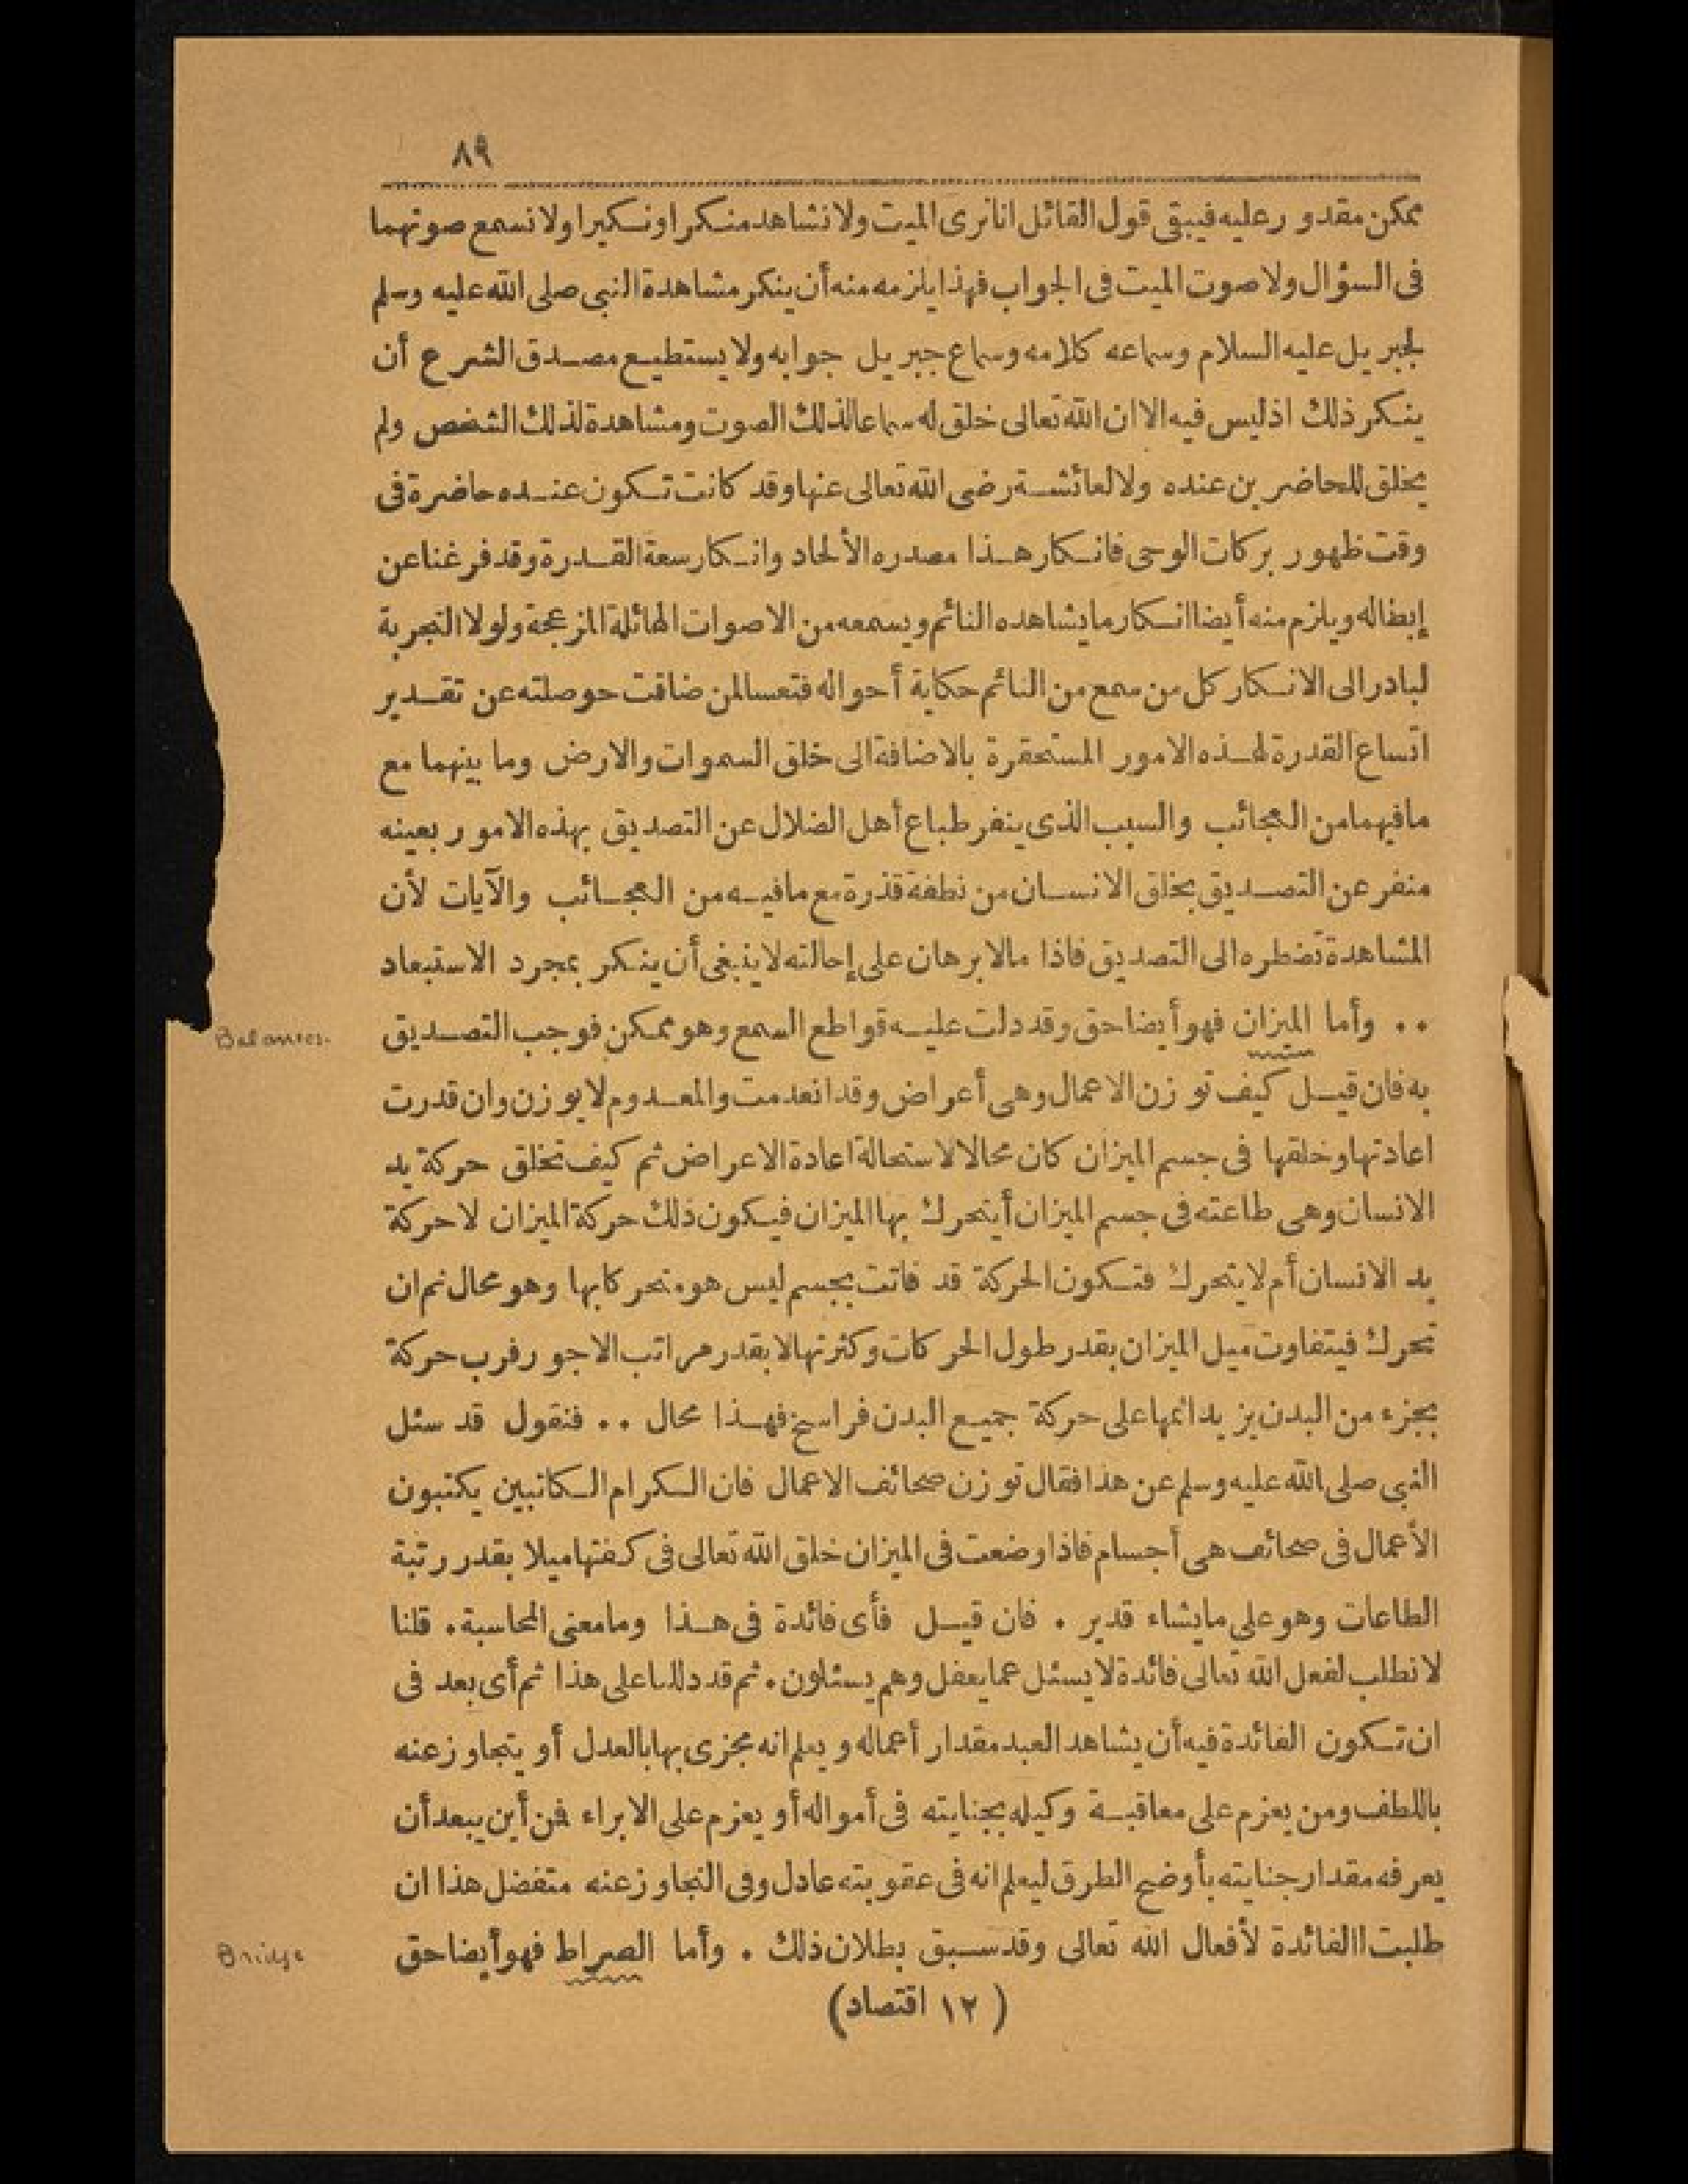 ٨٩
ممكن مقدور عليه فيبقى قول القائل انا نرى الميت ولا نشاهد منكرا ونكيرا ولا نسمع صوتهما
فى السؤال ولا صوت الميت فى الجواب فهذا يلزمه منه أن ينكر مشاهدة النبى صلى الله عليه وسلم
لجبريل عليه السلام وسماعه كلامه وسماع جبريل جوابه ولا يستطيع مصدق الشرع أن
ينكر ذلك اذ ليس فيه الا ان الله تعالى خلق له سماعا لذلك الصوت ومشاهدة لذلك الشخص ولم
يخلق للحاضرين عنده ولا لعائشة رضى الله تعالى عنها وقد كانت تكون عنده حاضرة فى
وقت ظهور بركات الوحى فانكار هذا مصدره الألحاد وانكار سعة القدرة وقد فرغنا عن
إبطاله ويلزم منه أيضا انكار ما يشاهده النائم ويسمعه من الاصوات الهائلة المزعجة ولولا التجربة
لبادر الى الانكار كل من سمع من النائم حكاية أحواله فتعسا لمن ضاقت حوصلته عن تقدير
اتساع القدرة لهذه الامور المستحقرة بالاضافة الى خلق السموات والارض وما بينهما مع
ما فيهما من العجائب والسبب الذى ينفر طباع أهل الضلال عن التصديق بهذه الامور بعينه
منفر عن التصديق بخلق الانسان من نطفة قذرة مع ما فيه من العجائب والآيات لأن
المشاهدة تضطره الى التصديق فاذا ما لا برهان على إحالته لا ينبغى أن ينكر بمجرد الاستبعاد
.. وأما الميزان فهو أيضا حق وقد دلت عليه قواطع السمع وهو ممكن فوجب التصديق
Balances.
به فان قيل كيف توزن الاعمال وهى أعراض وقد انعدمت والمعدوم لا يوزن وان قدرت
اعادتها وخلقها فى جسم الميزان كان محالا لاستحالة اعادة الاعراض ثم كيف تخلق حركة يد
الانسان وهى طاعته فى جسم الميزان أيتحرك بها الميزان فيكون ذلك حركة الميزان لا حركة
يد الانسان أم لا يتحرك فتكون الحركة قد فاتت بجسم ليس هو متحركا بها وهو محال ثم ان
تحرك فيتفاوت ميل الميزان بقدر طول الحركات وكثرتها لا بقدر مراتب الاجور فرب حركة
بجزء من البدن يزيد اثمها على حركة جميع البدن فراسخ فهذا محال .. فنقول قد سئل
النبى صلى الله عليه وسلم عن هذا فقال توزن صحائف الاعمال فان الكرام الكاتبين يكتبون
الأعمال فى صحائف هى أجسام فاذا وضعت فى الميزان خلق الله تعالى فى كفتها ميلا بقدر رتبة
الطاعات وهو على ما يشاء قدير . فان قيل فأى فائدة فى هذا وما معنى المحاسبة . قلنا
لا نطلب لفعل الله تعالى فائدة لا يسئل عما يفعل وهم يسئلون . ثم قد دللنا على هذا ثم أى بعد فى
ان تكون الفائدة فيه أن يشاهد العبد مقدار أعماله ويعلم انه مجزى بها بالعدل أو يتجاوز عنه
باللطف ومن يعزم على معاقبة وكيله بجنايته فى أمواله أو يعزم على الابراء فمن أين يبعد أن
يعرفه مقدار جنايته بأوضح الطرق ليعلم انه فى عقوبته عادل وفى التجاوز عنه متفضل هذا ان
طلبت الفائدة لأفعال الله تعالى وقد سبق بطلان ذلك . وأما الصراط فهو أيضا حق
Bridge
( ١٢ اقتصاد )